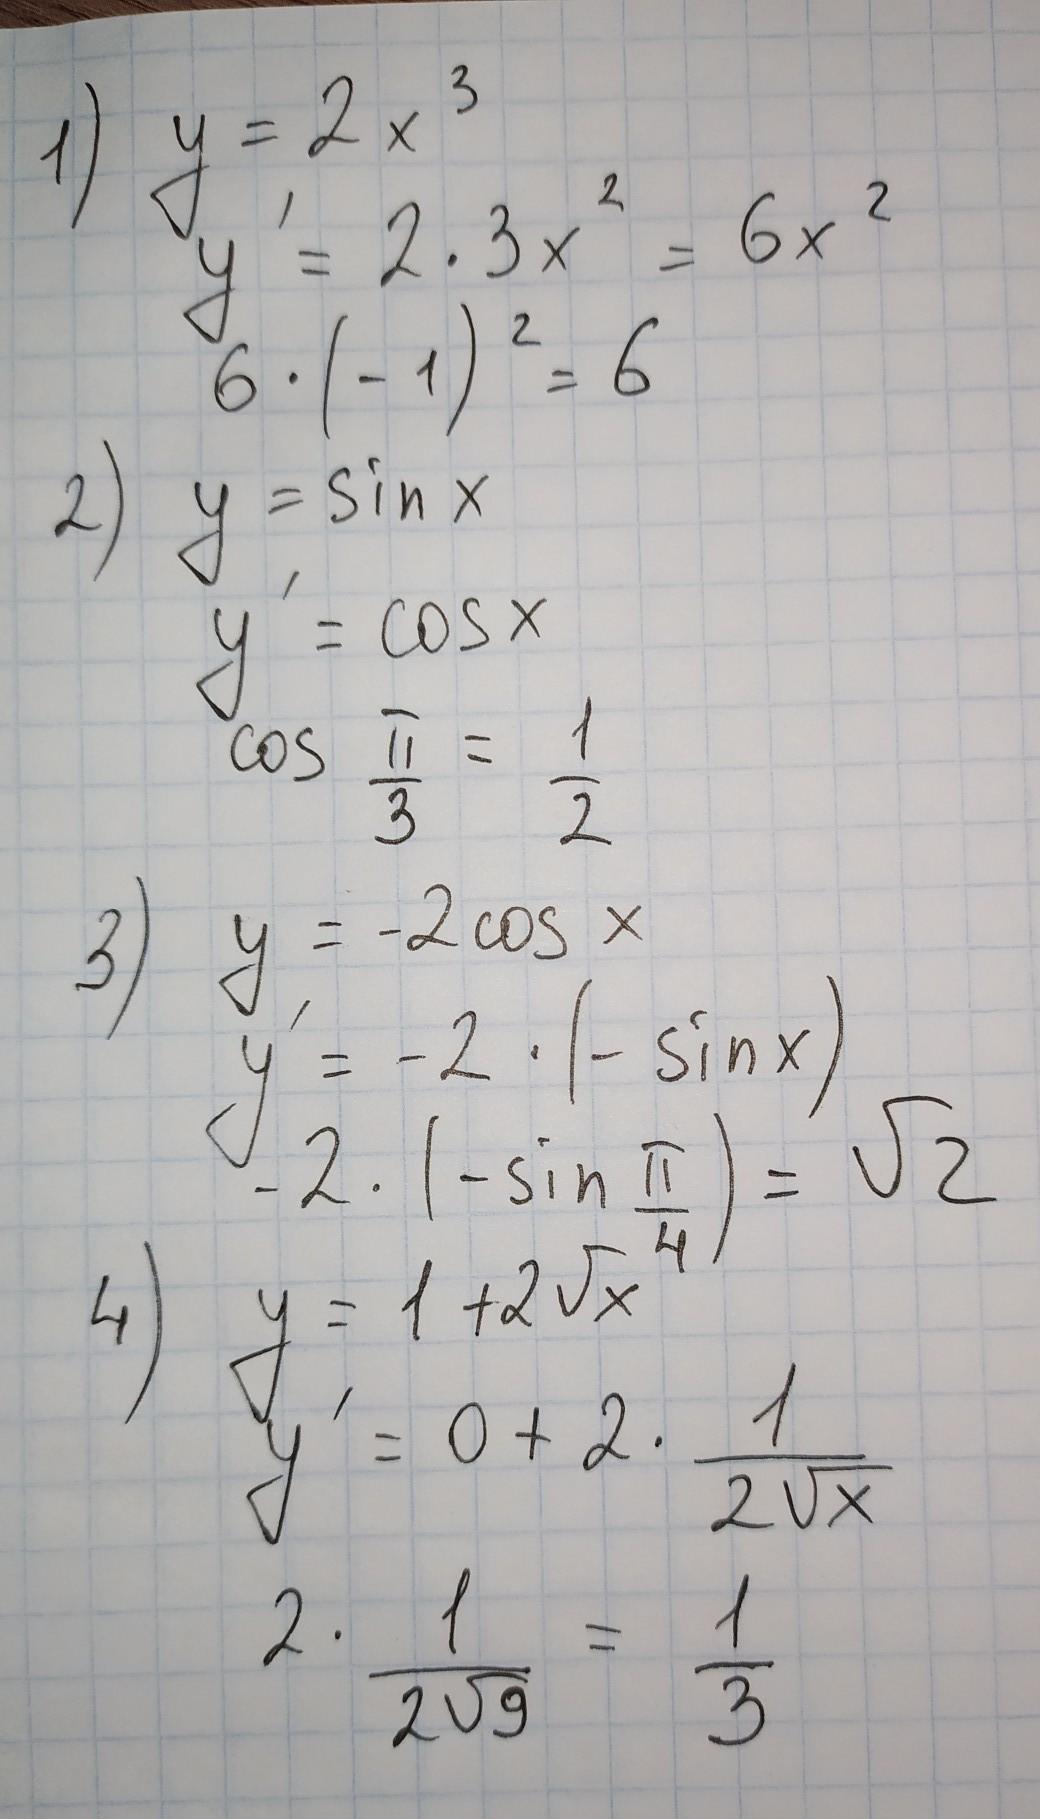 1) y = 2x³
y' = 2 · 3x² = 6x²
6 · (-1)² = 6
2) y = sin x
y' = cos x
cos π/3 = 1/2
3) y = -2cos x
y' = -2 · (- sin x)
-2 · (- sin π/4) = √2
4) y = 1 + 2√x
y' = 0 + 2 · 1/(2√x)
2 · 1/(2√9) = 1/3